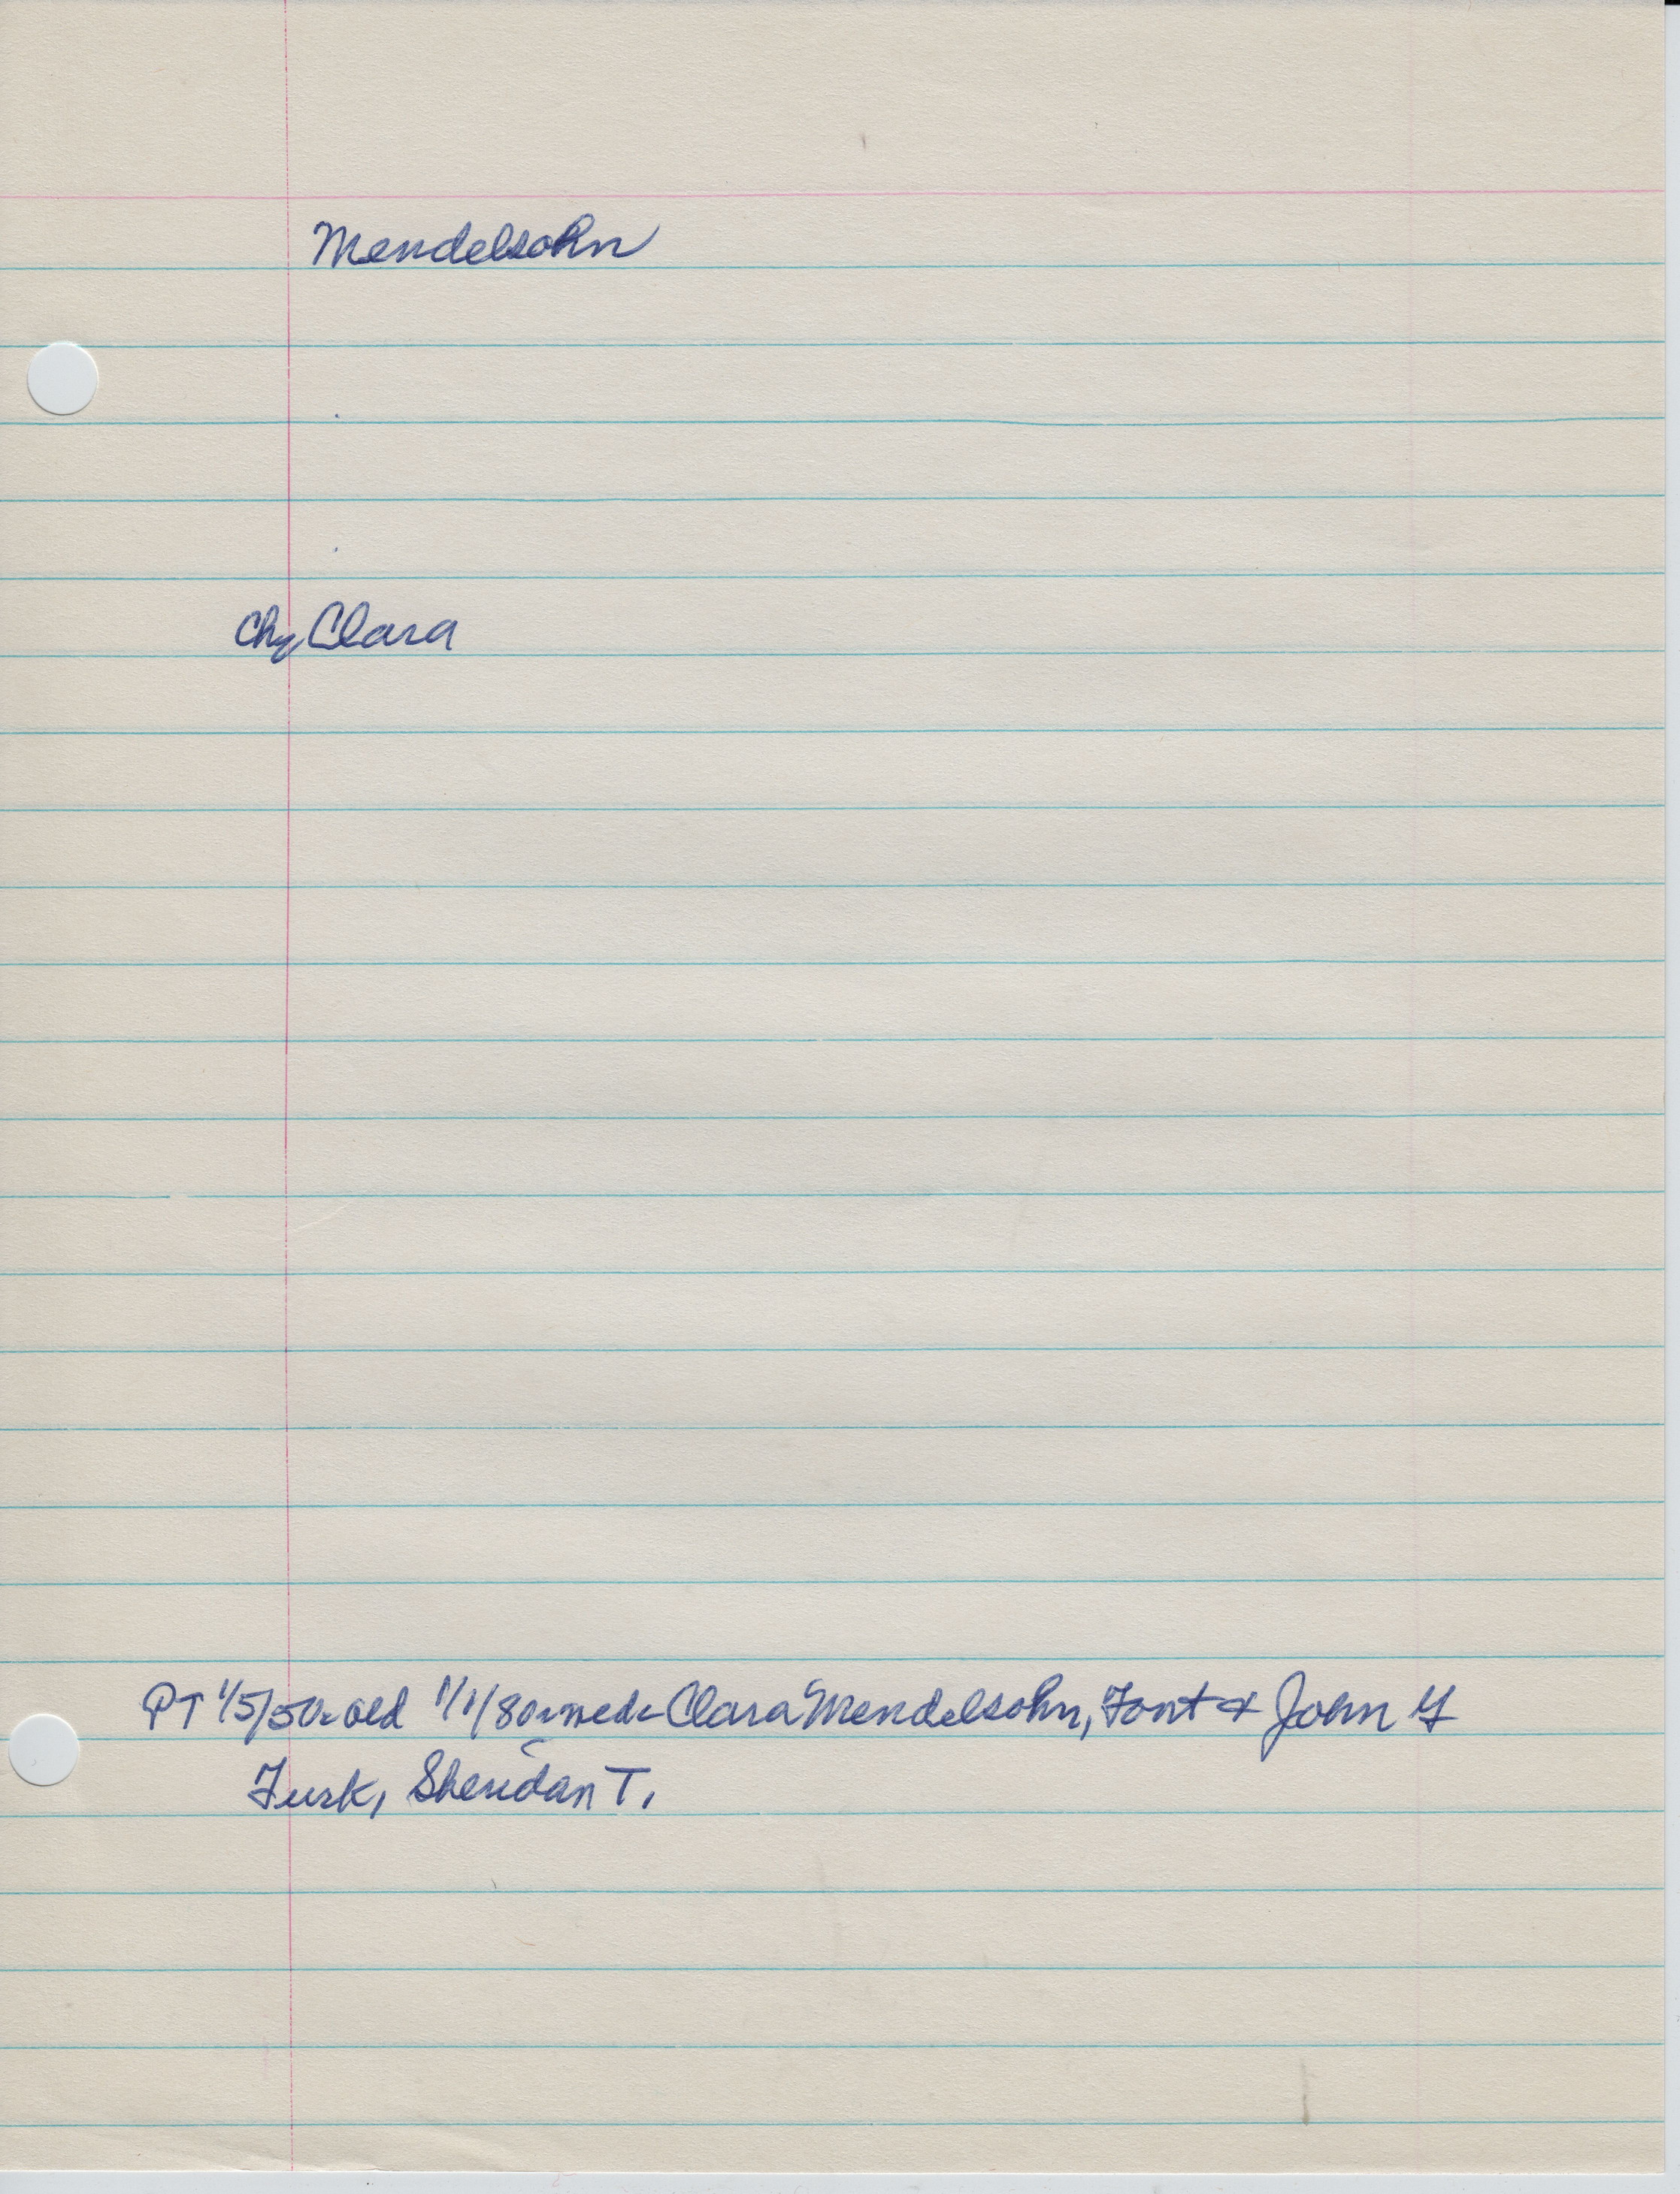 Mendelsohn
Chr Clara
PT 1/5/50- old 1/1/80- med- Clara Mendelsohn, Font & John Y
Turk, Sheridan T.